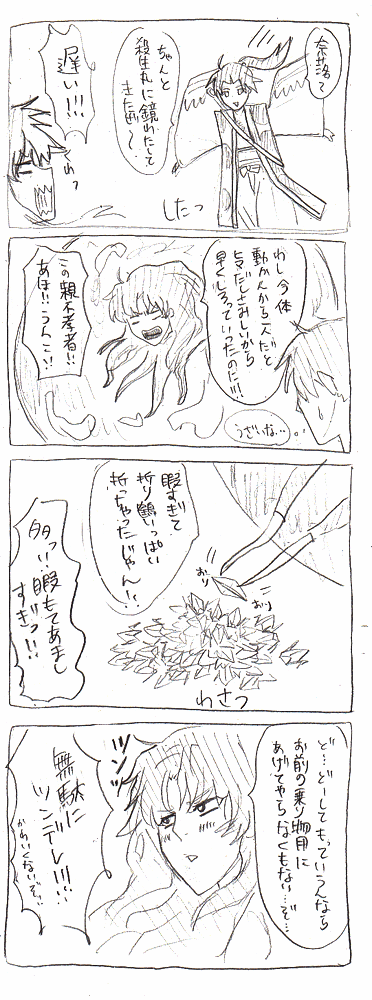 奈落〜
ちゃんと
殺生丸に鏡わたして
きたぜ〜
遅い!!!
くわっ
したっ
わし今体
動かんから
さみしいから
早くしろっていったのに!!!
この親不孝者!!
あほ!!うんこ!!
うざいな…
暇すぎて
折り鶴いっぱい
折っちゃったじゃん!!
おり
おり
わさっ
多っ!!暇もてあまし
すぎっ!!
ど…どーしてもっていうんなら
お前の乗り物用に
あげてやらなくもない…ぞ…
ツンッ
無駄に
ツンデレ!!!
かわいくないぞ…